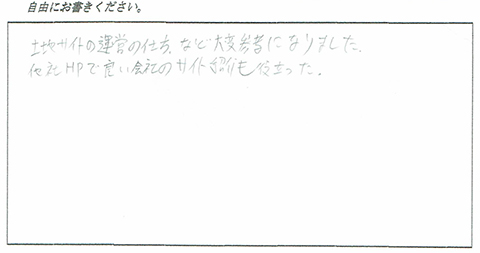 自由にお書きください。
土地サイトの運営の仕方、など大変参考になりました。
他社HPで良い会社のサイト紹介も役立った。